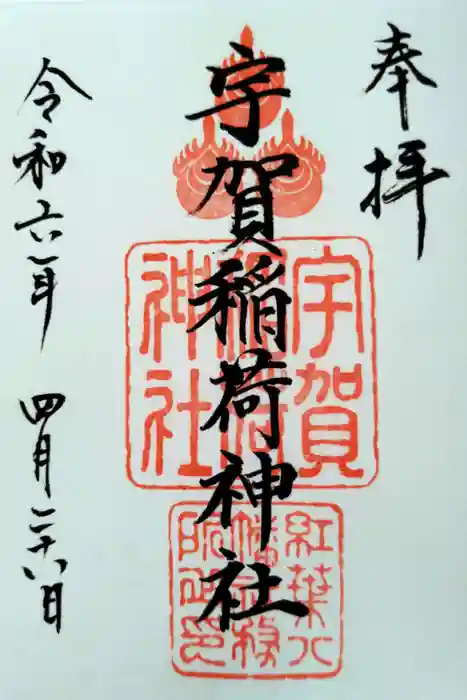 奉拝
宇賀稲荷神社
令和六年 四月二十八日
宇賀
稲荷
神社
紅葉八
幡社務
所之印